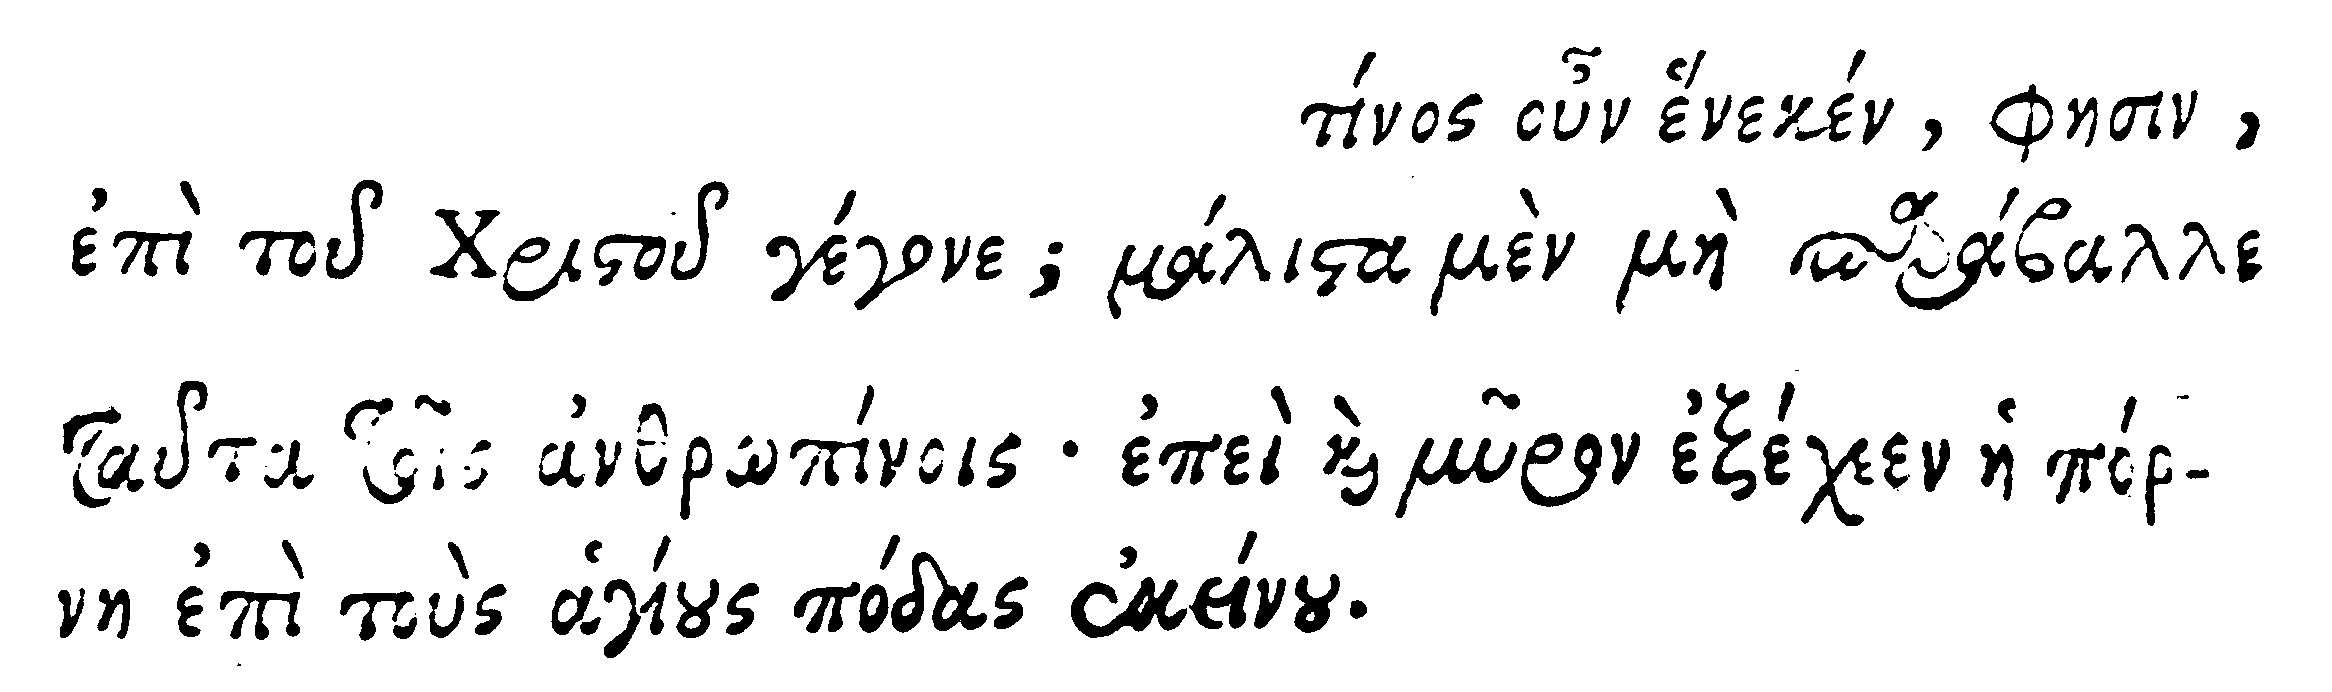 τίνος οὖν ἕνεκέν, φησιν,
ἐπὶ τοῦ Χριστοῦ γέγονε; μάλιστα μὲν μὴ παράβαλλε
ταῦτα τοῖς ἀνθρωπίνοις· ἐπεὶ καὶ μῦρον ἐξέχεεν ἡ πόρ-
νη ἐπὶ τοὺς ἁγίους πόδας ἐκείνου.